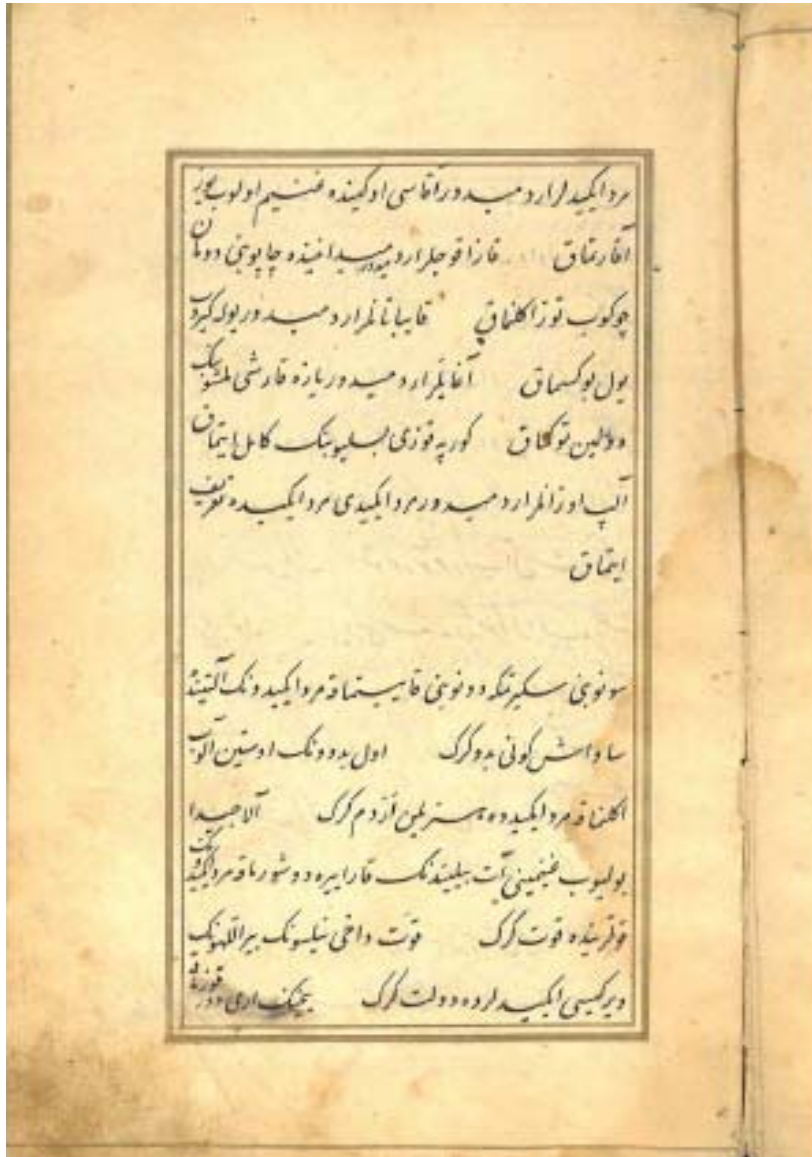 مرد ایکیدلر ارد میدور آقاسی اوکینده غنیم اولوب
آغارتماق قازاقوجلر ارد میدور میداننده چاپوبنی دومان
چوکوب توز اکلنماق قایباتانلر ارد میدور یول کیروب
یول بوکسماق آغایلر ارد میدور یازه قارشی
توکماق کورپه قوزی بسلیوبنک کامل ایتماق
آلپ اوزانلر ارد میدور مرد ایکیدی مرد ایکیده تعریف
ایتماق
سونوبنی سکیرتمکه دونوبنی قایتماقه مرد ایکیدونک آلتینده
ساواش کونی بدو کرک اول بدوونک اوستین آلوب
اکلنماقه مرد ایکیدده هنریلن آزدم کرک آلا جیدا
بولیوب غنیمینی آت بیلیندنک قارا ییره دوشورماقه مرد
قولرینده قوت کرک قوت داخی نیلسونک بیر اللهونک
ویرکیسی ایکیدلرده دولت کرک